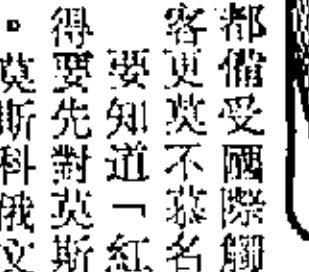 都備受國際觸
客更莫不慕名
要知道「紅
得要先對莫斯
。莫斯科俄文